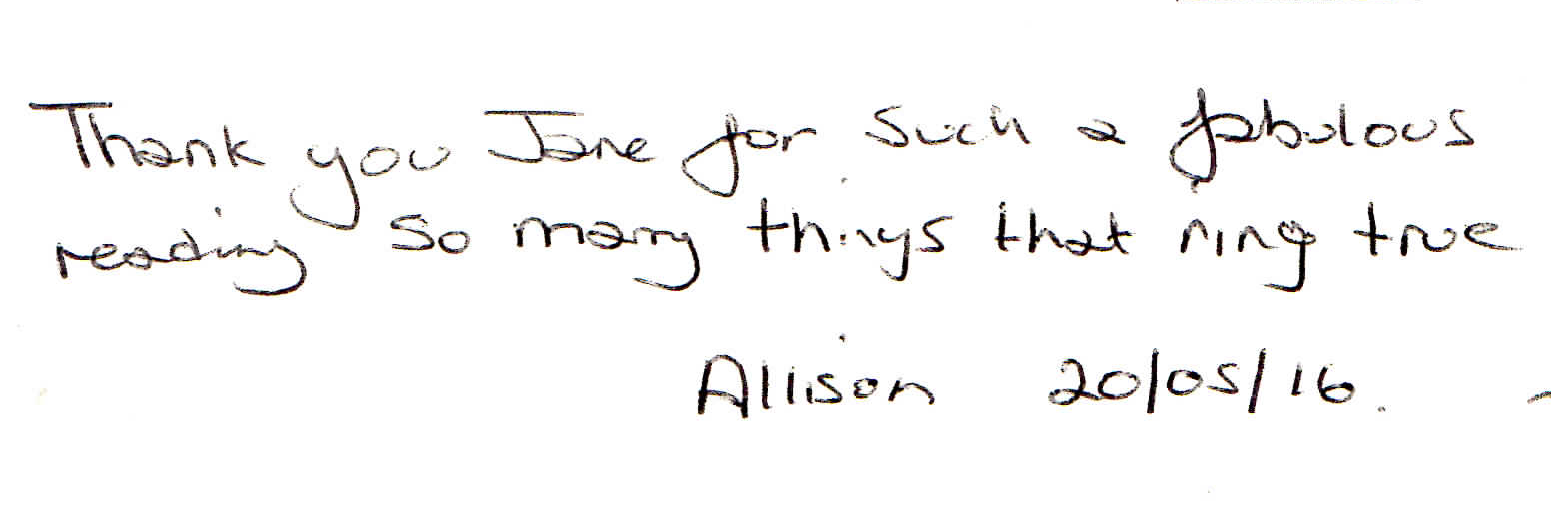 Thank you Jane for such a fabulous
reading so many things that ring true
Allison 20/05/16.